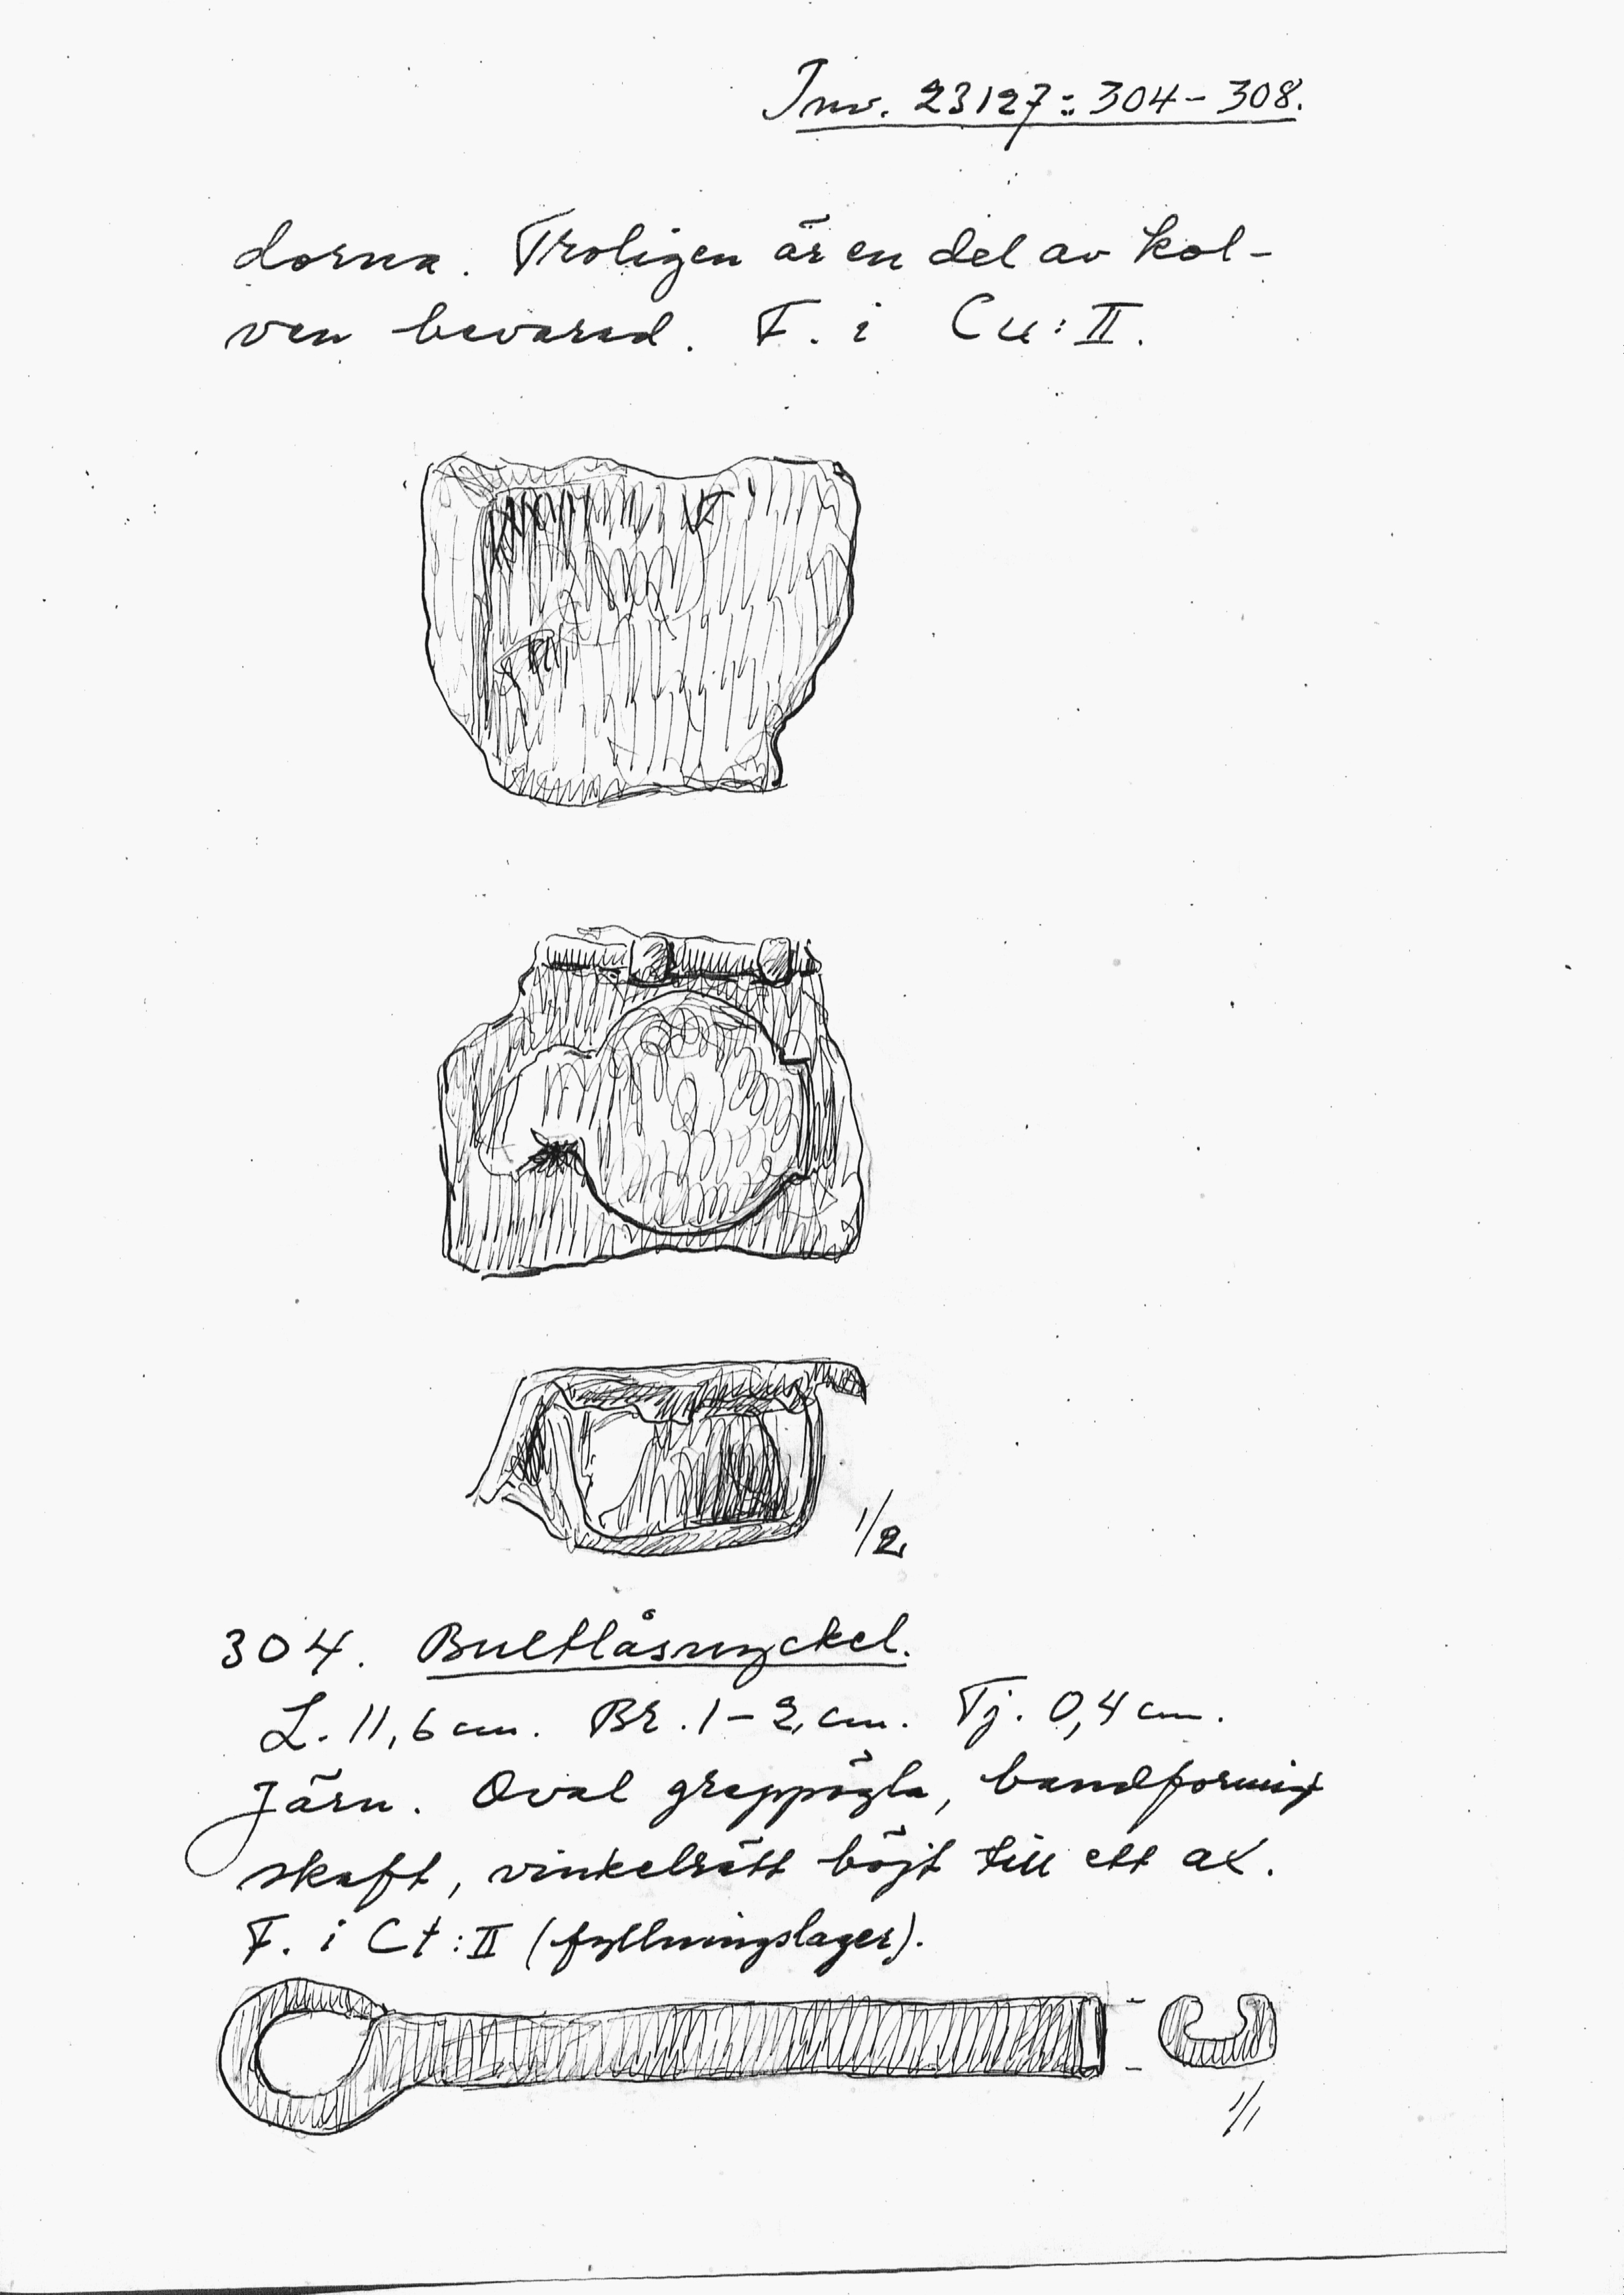 Inv. 23127: 304-308.
dorna. Troligen är en del av kol-
ven bevarad. F. i Cu: II.
1/2
304. Bultlåsnyckel.
L. 11,6 cm. Br. 1-2 cm. Tj. 0,4 cm.
Järn. Oval greppögla, bandformigt
skaft, vinkelrätt böjt till ett ax.
F. i Ct: II (fyllningslager).
1/1